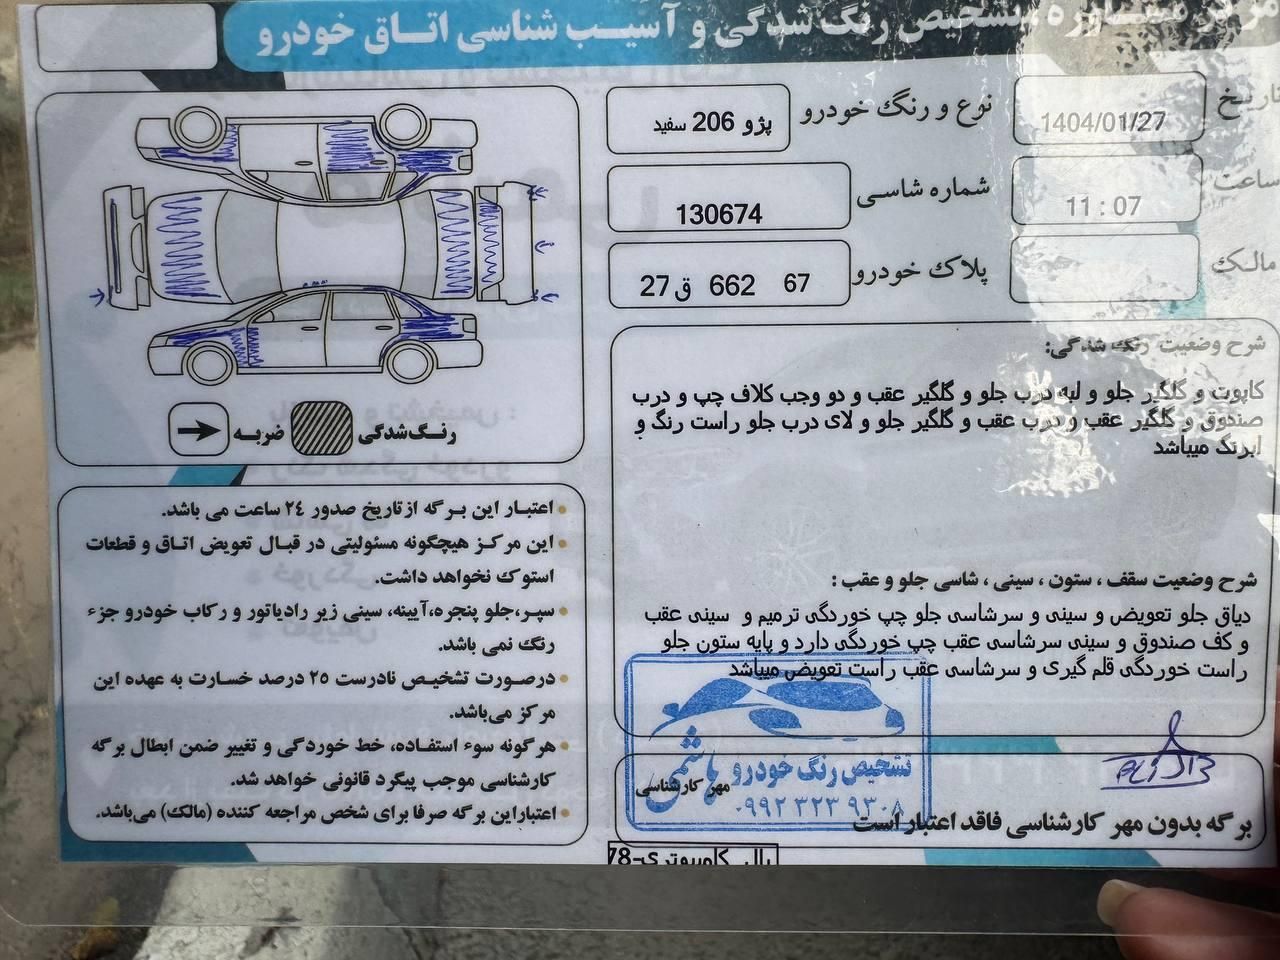 مرکز مشاوره، تشخیص رنگ شدگی و آسیب شناسی اتاق خودرو
تاریخ 1404/01/27
نوع و رنگ خودرو پژو 206 سفید
ساعت 11 : 07
شماره شاسی 130674
مالک
پلاک خودرو 67 662 ق 27
شرح وضعیت رنگ شدگی:
کاپوت و گلگیر جلو و لبه درب جلو و گلگیر عقب و دو وجب کلاف چپ و درب
صندوق و گلگیر عقب و درب عقب و گلگیر جلو و لای درب جلو راست رنگ و
ابرنگ میباشد
شرح وضعیت سقف ، ستون ، سینی ، شاسی جلو و عقب :
دیاق جلو تعویض و سینی و سرشاسی جلو چپ خوردگی ترمیم و سینی عقب
و کف صندوق و سینی سرشاسی عقب چپ خوردگی دارد و پایه ستون جلو
راست خوردگی قلم گیری و سرشاسی عقب راست تعویض میباشد
تشخیص رنگ خودرو هاشمی
مهر کارشناسی
۰۹۹۲ ۳۲۳ ۹۳۰۸
برگه بدون مهر کارشناسی فاقد اعتبار است
رنگ شدگی
ضربه
اعتبار این برگه از تاریخ صدور ٢٤ ساعت می باشد.
این مرکز هیچگونه مسئولیتی در قبال تعویض اتاق و قطعات
استوک نخواهد داشت.
سپر،جلو پنجره،آیینه، سینی زیر رادیاتور و رکاب خودرو جزء
رنگ نمی باشد.
درصورت تشخیص نادرست ٢٥ درصد خسارت به عهده این
مرکز می‌باشد.
هرگونه سوء استفاده، خط خوردگی و تغییر ضمن ابطال برگه
کارشناسی موجب پیگرد قانونی خواهد شد.
اعتباراین برگه صرفا برای شخص مراجعه کننده (مالک) می‌باشد.